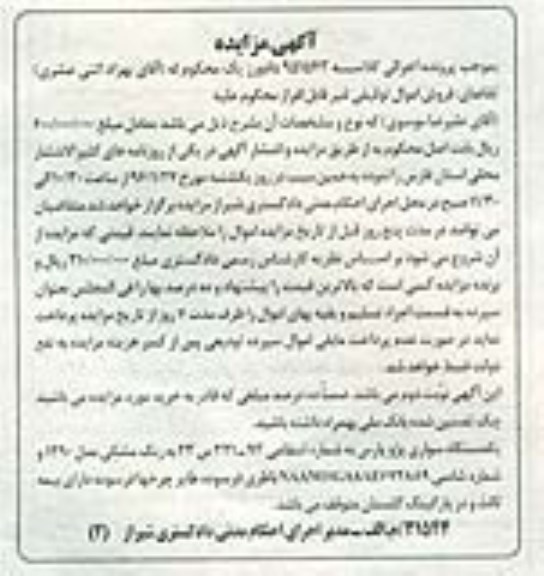 آگهی مزایده
بموجب پرونده اجرائی کلاسه دایره یک محکوم له (آقای بهزاد اثنی عشری)
تقاضای فروش اموال توقیفی غیر قابل افراز محکوم علیه
(آقای علیرضا موسوی) که نوع و مشخصات آن بشرح ذیل می باشد معادل مبلغ
ریال بابت اصل محکوم به از طریق مزایده و انتشار آگهی در یکی از روزنامه های کثیرالانتشار
محلی استان فارس را نموده به همین سبب در روز یکشنبه مورخ از ساعت الی
صبح در محل اجرای احکام مدنی دادگستری شیراز مزایده برگزار خواهد شد متقاضیان
می توانند در مدت پنج روز قبل از تاریخ مزایده اموال را ملاحظه نمایند. قیمتی که مزایده از
آن شروع می شود بر اساس نظریه کارشناس رسمی دادگستری مبلغ ریال و
برنده مزایده کسی است که بالاترین قیمت را پیشنهاد و ده درصد بها را فی المجلس بعنوان
سپرده به قسمت اجراء تسلیم و بقیه بهای اموال را ظرف مدت روز از تاریخ مزایده پرداخت
نماید در صورت عدم پرداخت مابقی اموال سپرده تودیعی پس از کسر هزینه مزایده به نفع
دولت ضبط خواهد شد.
این آگهی نوبت دوم می باشد. ضمناً ده درصد مبلغی که قادر به خرید مورد مزایده می باشید
چک تضمین شده بانک ملی بهمراه داشته باشید.
یکدستگاه سواری پژو پارس به شماره انتظامی به رنگ مشکی مدل ۱۳۹۰ و
شماره شاسی باطری فرسوده ظاهر چرخها فرسوده دارای بیمه
ثالث و در پارکینگ گلستان متوقف می باشد.
۳۱۵۲۴/م الف ـ مدیر اجرای احکام مدنی دادگستری شیراز (۲)